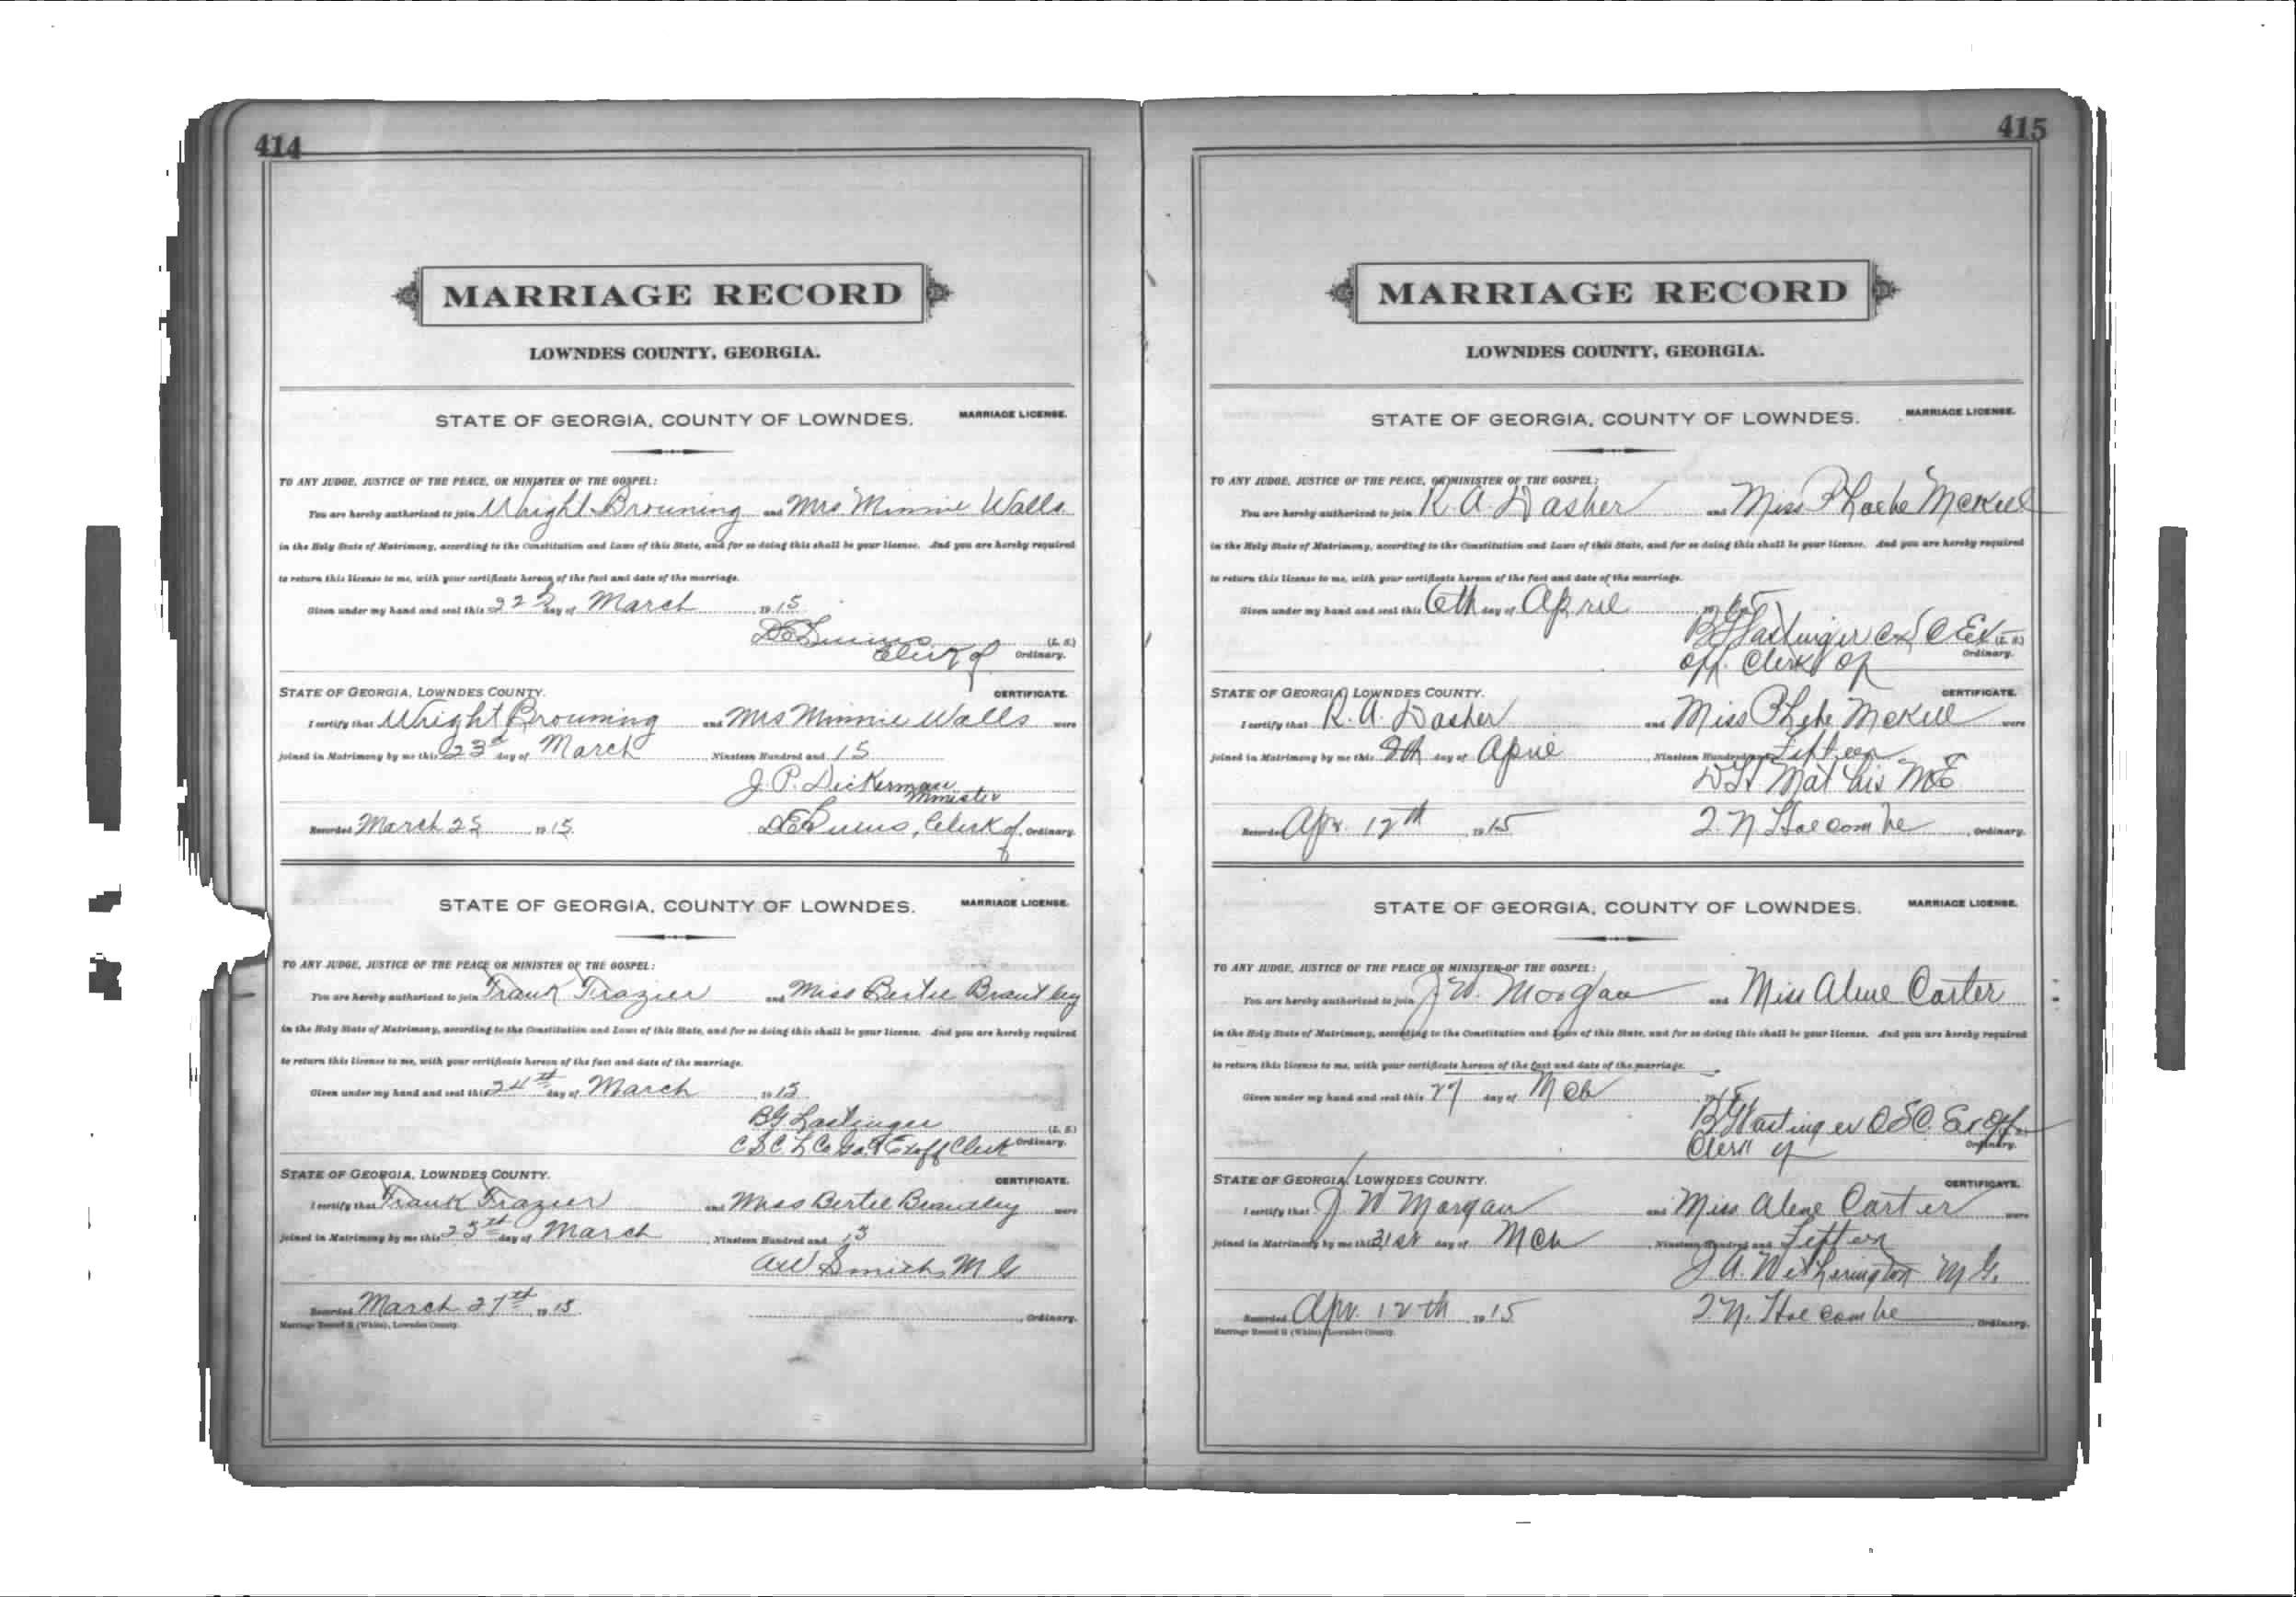 414
MARRIAGE RECORD
LOWNDES COUNTY, GEORGIA.
STATE OF GEORGIA, COUNTY OF LOWNDES. MARRIAGE LICENSE.
TO ANY JUDGE, JUSTICE OF THE PEACE, OR MINISTER OF THE GOSPEL:
You are hereby authorized to join Wright Browning and Mrs Minnie Walls
in the Holy State of Matrimony, according to the Constitution and Laws of this State, and for so doing this shall be your license. And you are hereby required
to return this license to me, with your certificate hereon of the fact and date of the marriage.
Given under my hand and seal this 22 day of March 1915
(L. S.)
Clerk of Ordinary.
STATE OF GEORGIA, LOWNDES COUNTY. CERTIFICATE.
I certify that Wright Browning and Mrs Minnie Walls were
joined in Matrimony by me this 23 day of March Nineteen Hundred and 15
J. P. Dickerman
Minister
Recorded March 25 1915 Clerk of, Ordinary.
STATE OF GEORGIA, COUNTY OF LOWNDES. MARRIAGE LICENSE.
TO ANY JUDGE, JUSTICE OF THE PEACE OR MINISTER OF THE GOSPEL:
You are hereby authorized to join Frank Frazier and Miss Bertie Brantley
in the Holy State of Matrimony, according to the Constitution and Laws of this State, and for so doing this shall be your license. And you are hereby required
to return this license to me, with your certificate hereon of the fact and date of the marriage.
Given under my hand and seal this 24th day of March 1915
B G Lastinger (L. S.)
C S C L Co Ga & Exoff Clerk Ordinary.
STATE OF GEORGIA, LOWNDES COUNTY. CERTIFICATE.
I certify that Frank Frazier and Miss Bertie Brantley were
joined in Matrimony by me this 25th day of March, Nineteen Hundred and 15
A W Smith, M G
Recorded March 27th 1915 , Ordinary.
Marriage Record (White), Lowndes County.
415
MARRIAGE RECORD
LOWNDES COUNTY, GEORGIA.
STATE OF GEORGIA, COUNTY OF LOWNDES. MARRIAGE LICENSE.
TO ANY JUDGE, JUSTICE OF THE PEACE, OR MINISTER OF THE GOSPEL:
You are hereby authorized to join R. A. Dasher and Miss Phoebe McKee
in the Holy State of Matrimony, according to the Constitution and Laws of this State, and for so doing this shall be your license. And you are hereby required
to return this license to me, with your certificate hereon of the fact and date of the marriage.
Given under my hand and seal this 6th day of April 1915
B G Lastinger C S C Ex (L. S.)
off. Clerk of Ordinary.
STATE OF GEORGIA, LOWNDES COUNTY. CERTIFICATE.
I certify that R. A. Dasher and Miss McKee were
joined in Matrimony by me this 8th day of April, Nineteen Hundred and Fifteen
Mathis
Recorded Apr. 12th 1915 Holcombe, Ordinary.
STATE OF GEORGIA, COUNTY OF LOWNDES. MARRIAGE LICENSE.
TO ANY JUDGE, JUSTICE OF THE PEACE OR MINISTER OF THE GOSPEL:
You are hereby authorized to join J W. Morgan and Miss Alene Carter
in the Holy State of Matrimony, according to the Constitution and Laws of this State, and for so doing this shall be your license. And you are hereby required
to return this license to me, with your certificate hereon of the fact and date of the marriage.
Given under my hand and seal this 27 day of Mch 1915
B G Lastinger C S C. Ex Off.
Clerk of Ordinary.
STATE OF GEORGIA, LOWNDES COUNTY. CERTIFICATE.
I certify that J W Morgan and Miss Alene Carter were
joined in Matrimony by me this 31st day of Mch, Nineteen Hundred and Fifteen
J A. Wetherington M G.
Recorded Apr. 12th 1915 Holcombe, Ordinary.
Marriage Record (White), Lowndes County.